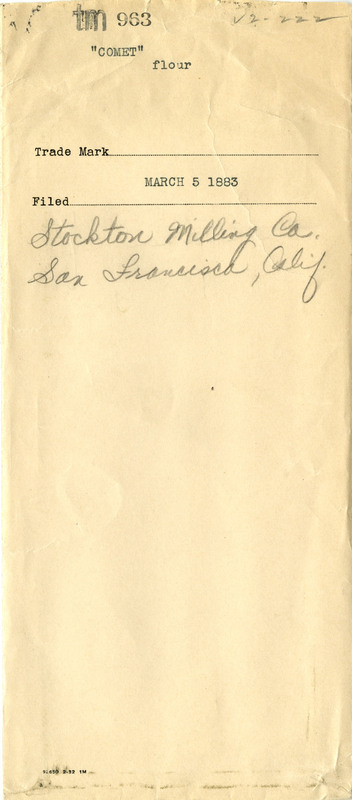 tm 963 V2-222
"COMET"
flour
Trade Mark
MARCH 5 1883
Filed
Stockton Milling Co.
San Francisco, Calif.
2-32 1M